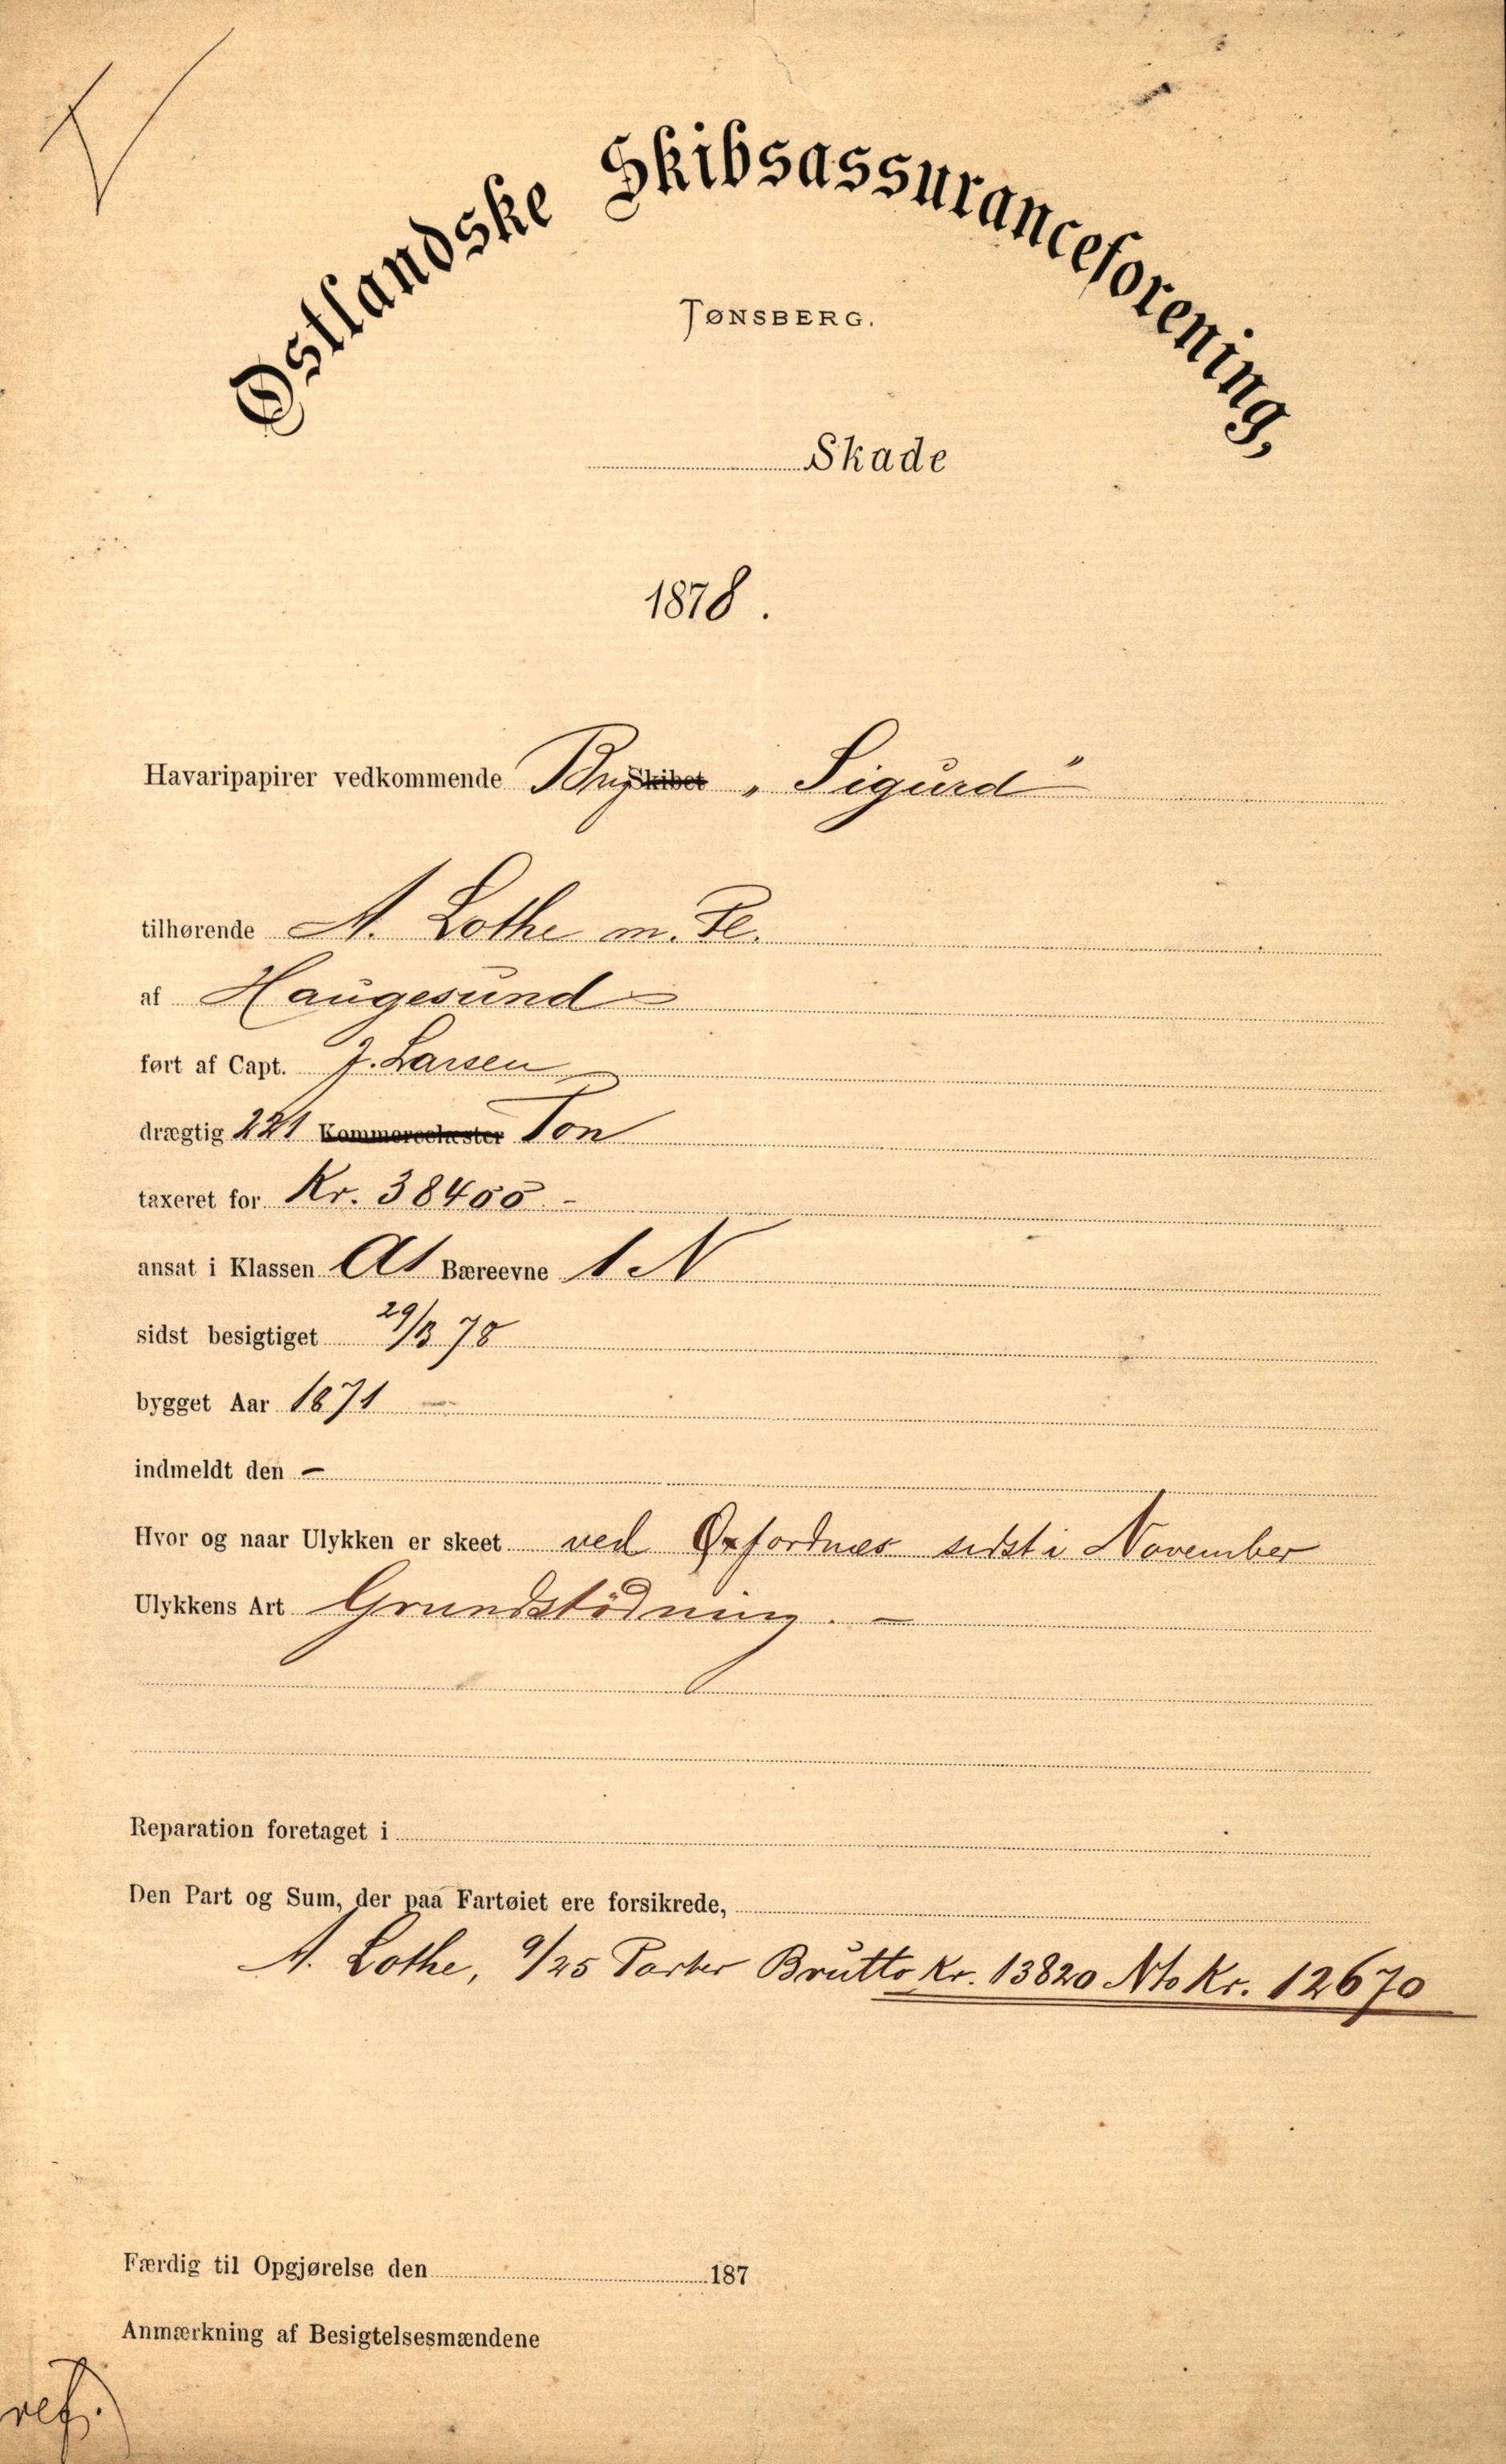 Østlandske Skibsassuranceforening,
TØNSBERG.
Skade
1878.
Havaripapirer vedkommende Brig Skibet „Sigurd"
tilhørende A. Lothe m. Fl.
af Haugesund
ført af Capt. J. Larsen
drægtig 221 Kommercelæster Ton
taxeret for Kr. 38400 -
ansat i Klassen A1 Bæreevne 1 N
sidst besigtiget 29/3 78
bygget Aar 1871 -
indmeldt den -
Hvor og naar Ulykken er skeet ved Oxfordnes sidst i November
Ulykkens Art Grundstödning. -
Reparation foretaget i
Den Part og Sum, der paa Fartøiet ere forsikrede,
A. Lothe, 9/25 Parter Brutto Kr. 13820 Nto Kr. 12670
Færdig til Opgjørelse den 187
Anmærkning af Besigtelsesmændene